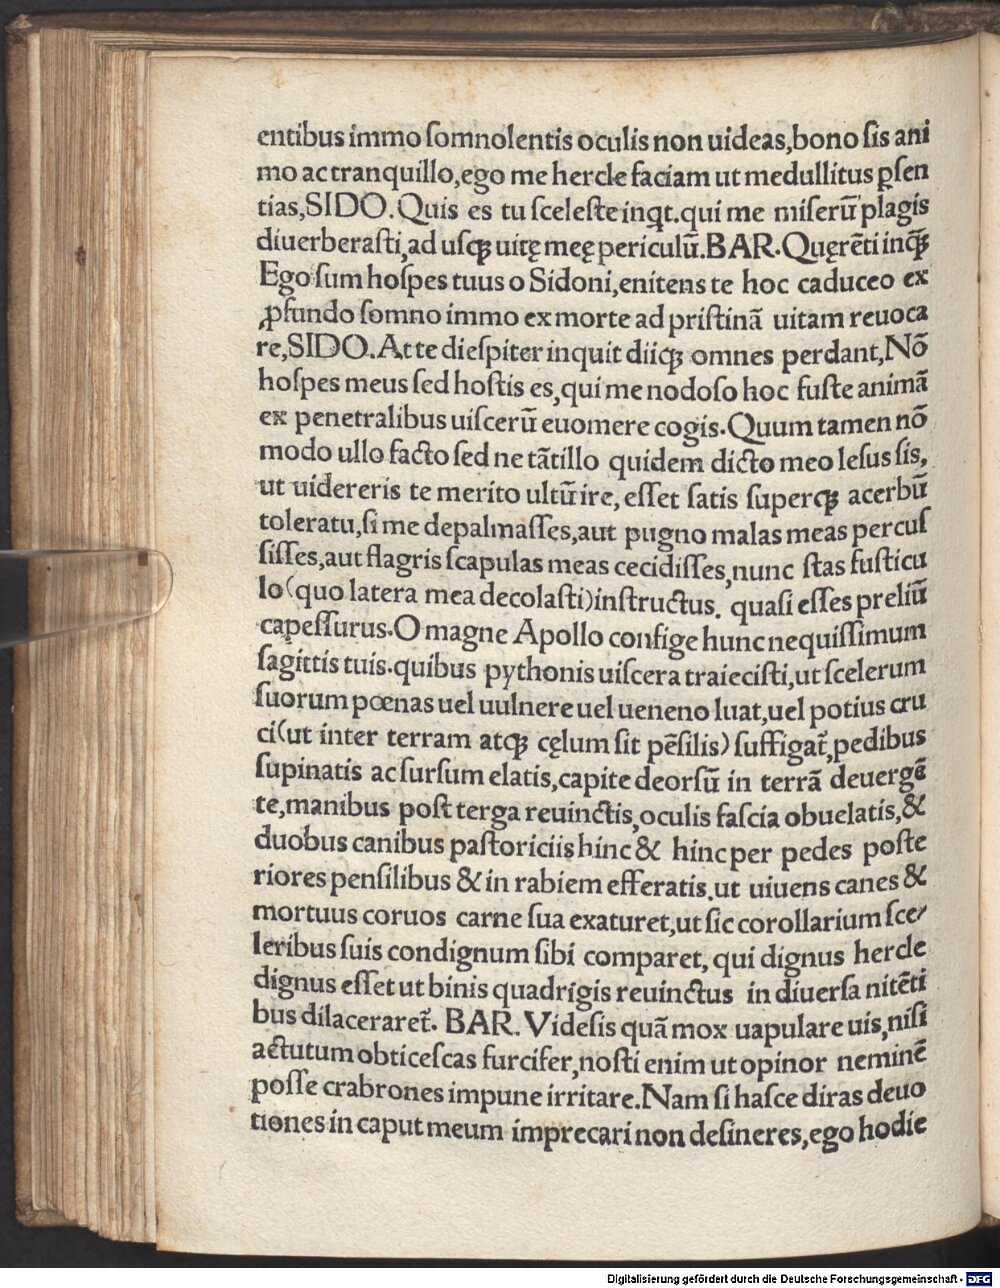 entibus immo ſomnolentis oculis non uideas,bono ſis ani
mo ac tranquillo,ego me hercle faciam ut medullitus ꝑſen
tias,SIDO.Quis es tu ſceleſte inq̃t.qui me miſerũ plagis
diuerberaſti,ad uſqꝫ uitę meę periculũ.BAR.Quęrẽti inq̃ꝫ
Ego ſum hoſpes tuus o Sidoni,enitens te hoc caduceo ex
ꝓfundo ſomno immo ex morte ad priſtinã uitam reuoca
re,SIDO.At te dieſpiter inquit diiqꝫ omnes perdant,Nõ
hoſpes meus ſed hoſtis es,qui me nodoſo hoc fuſte animã
ex penetralibus uiſcerũ euomere cogis.Quum tamen nõ
modo ullo facto ſed ne tãtillo quidem dicto meo leſus ſis,
ut uidereris te merito ultũ ire, eſſet ſatis ſuperqꝫ acerbũ
toleratu,ſi me depalmaſſes,aut pugno malas meas percuſ
ſiſſes,aut flagris ſcapulas meas cecidiſſes,nunc ſtas fuſticu
lo(quo latera mea decolaſti)inſtructus. quaſi eſſes preliũ
capeſſurus.O magne Apollo confige hunc nequiſſimum
ſagittis tuis.quibus pythonis uiſcera traieciſti,ut ſcelerum
ſuorum pœnas uel uulnere uel ueneno luat,uel potius cru
ci(ut inter terram atqꝫ cęlum ſit pẽſilis) ſuffigat̃,pedibus
ſupinatis ac ſurſum elatis,capite deorſũ in terrã deuergẽ
te,manibus poſt terga reuinctis,oculis faſcia obuelatis,&
duobus canibus paſtoriciis hinc & hinc per pedes poſte
riores penſilibus & in rabiem efferatis.ut uiuens canes &
mortuus coruos carne ſua exaturet,ut ſic corollarium ſce/
leribus ſuis condignum ſibi comparet, qui dignus hercle
dignus eſſet ut binis quadrigis reuinctus in diuerſa nitẽti
bus dilaceraret̃. BAR. Videſis quã mox uapulare uis,niſi
actutum obticeſcas furcifer,noſti enim ut opinor neminẽ
poſſe crabrones impune irritare.Nam ſi haſce diras deuo
tiones in caput meum imprecari non deſineres,ego hodie
Digitalisierung gefördert durch die Deutsche Forschungsgemeinschaft - DFG